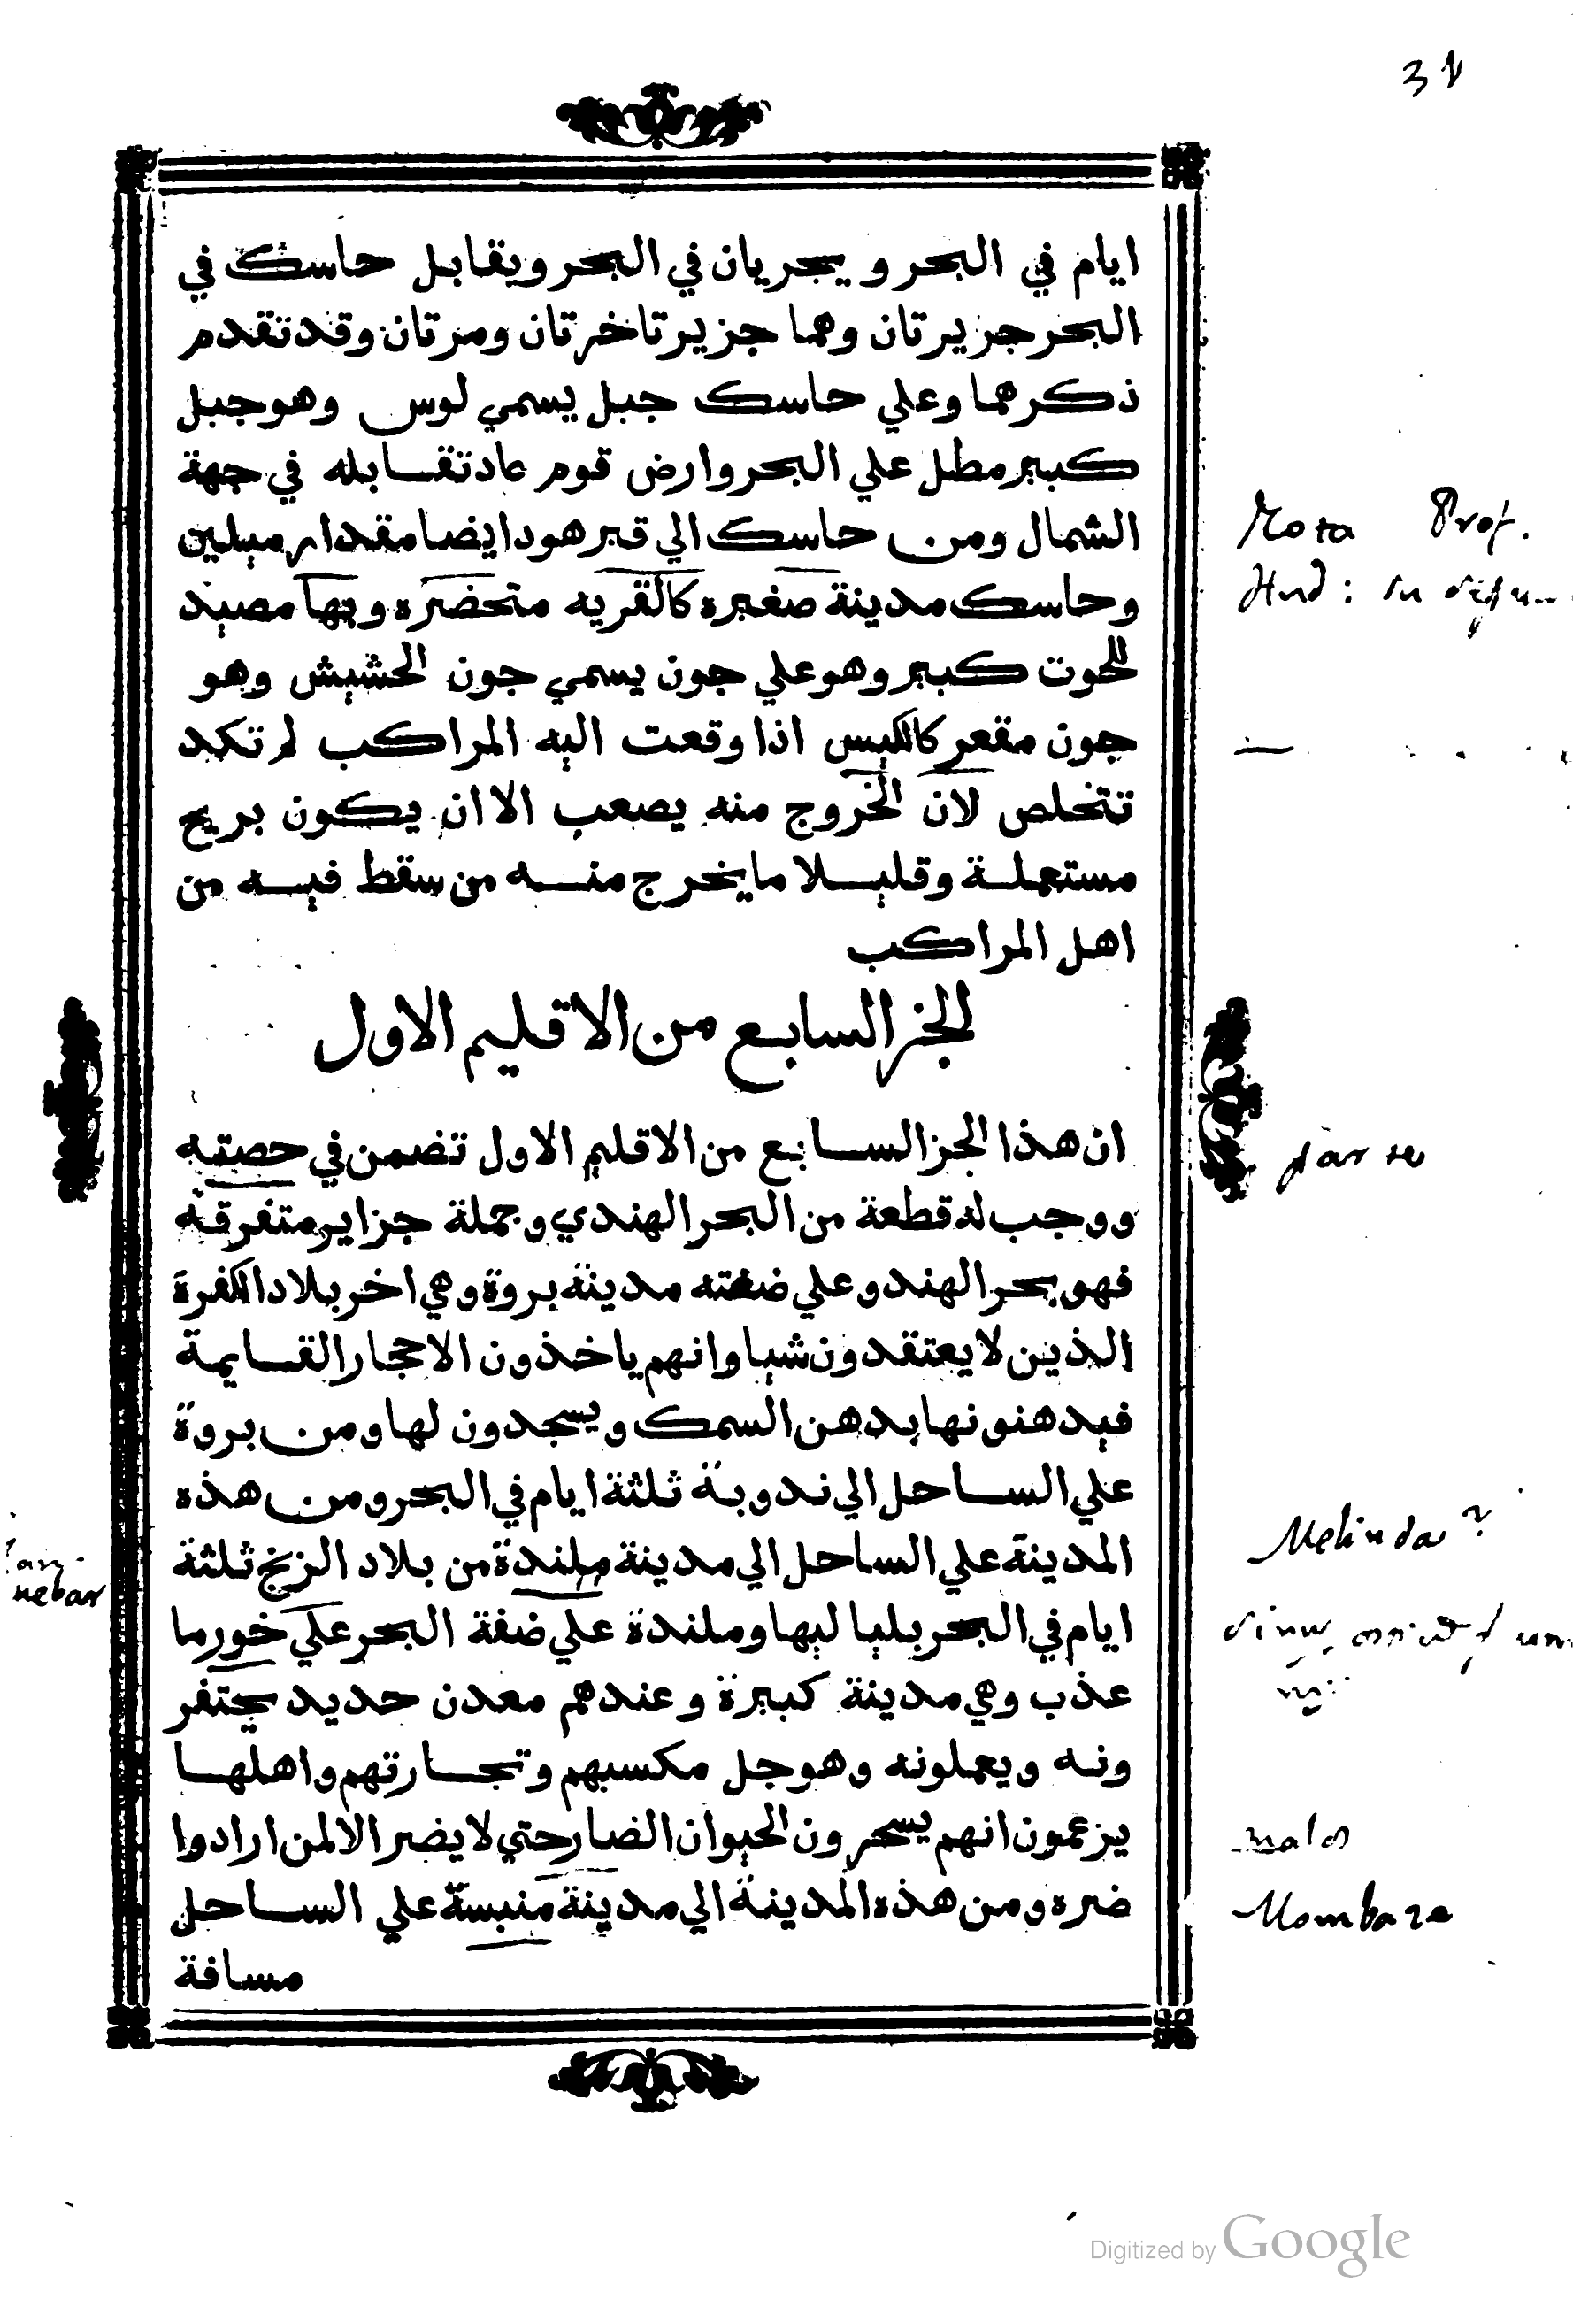 31
ايام في البحر و يجريان في البحر ويقابل حاسك في
البحر جزيرتان وهما جزيرتا خرتان ومرتان وقد تقدم
ذكرهما وعلي حاسك جبل يسمي لوس وهو جبل
كبير مطل علي البحر وارض قوم عاد تقابله في جهة
الشمال ومن حاسك الي قبر هود ايضا مقدار ميلين
وحاسك مدينة صغيره كالقريه متحضره وبها مصيد
للحوت كبير وهو علي جون يسمي جون الحشيش وهو
جون مقعر كالكيس اذا وقعت اليه المراكب لم تكد
تتخلص لان الخروج منه يصعب الا ان يكون بريح
مستعملة وقليلا ما يخرج منه من سقط فيه من
اهل المراكب
الجز السابع من الاقليم الاول
ان هذا الجز السابع من الاقليم الاول تضمن في حصته
ووجب له قطعة من البحر الهندي وجملة جزاير متفرقه
فهو بحر الهند وعلي ضفته مدينة بروة وهي اخر بلاد الكفرة
الذين لا يعتقدون شيا وانهم ياخذون الاحجار القايمة
فيدهنونها بدهن السمك ويسجدون لها ومن بروة
علي الساحل الي ندوبة ثلثة ايام في البحر ومن هذه
المدينة علي الساحل الي مدينة ملندة من بلاد الزنج ثلثة
ايام في البحر بليا ليها وملندة علي ضفة البحر علي خور ما
عذب وهي مدينة كبيرة وعندهم معدن حديد يحتفر
ونه ويعملونه وهو جل مكسبهم وتجارتهم واهلها
يزعمون انهم يسحرون الحيوان الضار حتي لا يضر الا لمن ارادوا
ضره ومن هذه المدينة الي مدينة منبسة علي الساحل
مسافة
Nota Prof.
Hud:
parte
Melinda?
nebar
Mombaza
Digitized by Google